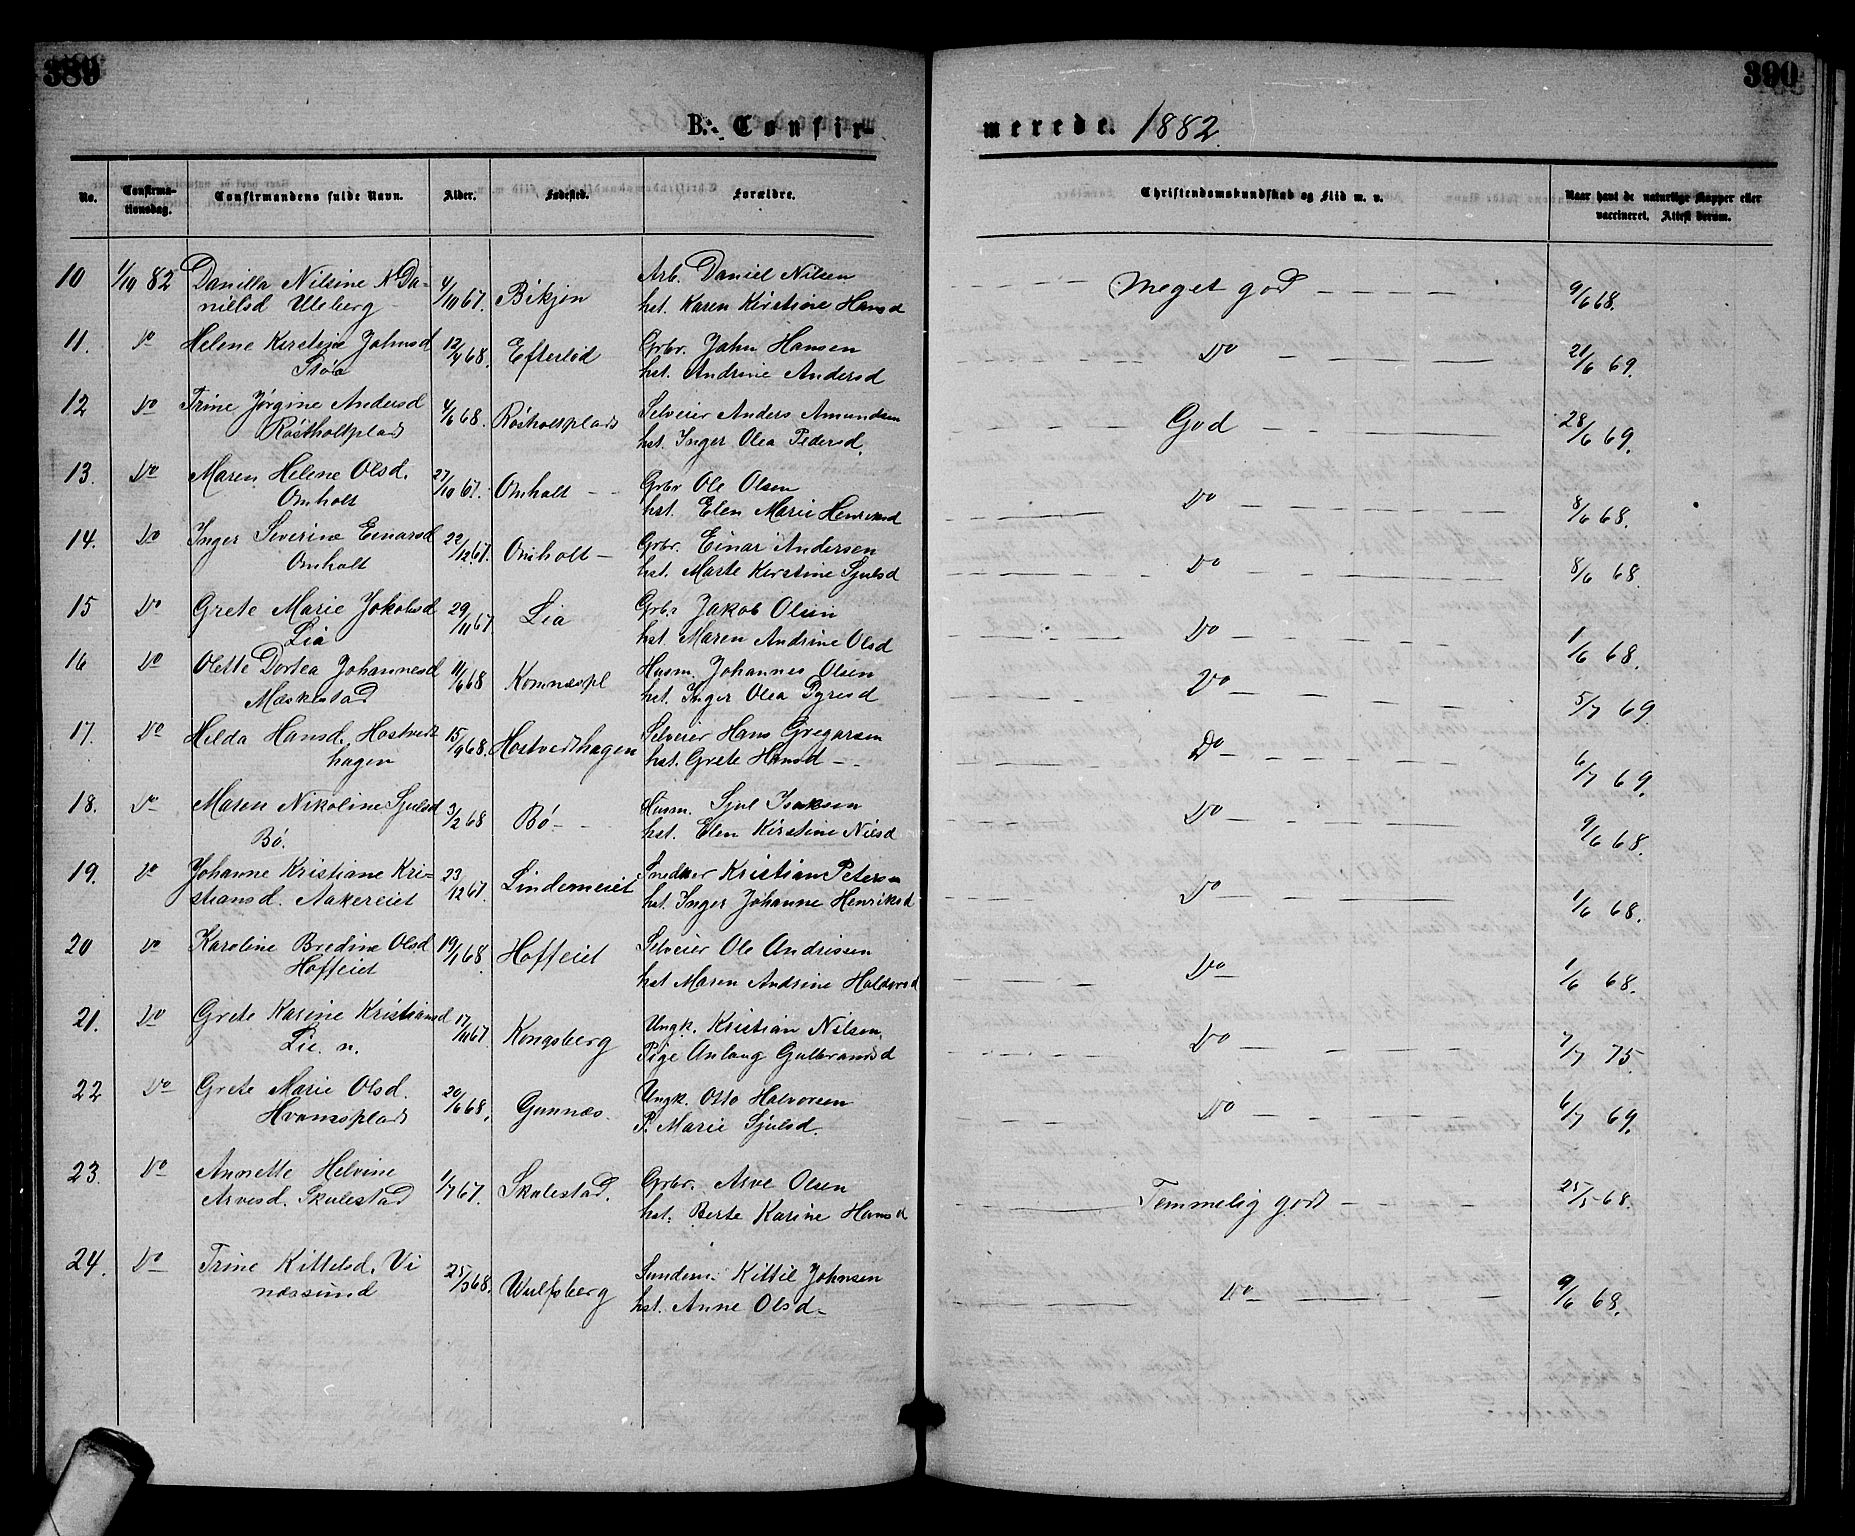 389
390
B. Confir-
merede. 1882.
No.
Confirma-
tionsdag.
Confirmandens fulde Navn.
Alder.
Fødested.
Forældre.
Christendomskundskab og Flid m. v.
Naar havt de naturlige Kopper eller
vaccineret. Attest derom.
10 1/10 82 Danilla Nilsine Da- 4/10 67. Arb. Daniel Nilsen Meget god 9/6 68.
nielsd Uleberg hst. Karen Kirstine Hansd
11. Do Helene Kirstine Johnsd 12/4 68. Efterlød Grbr. John Hansen Do 21/6 69.
Stoa hst. Andrine Andersd
12 Do Trine Jørgine Andersd 4/6 68. Røstholtplads Selveier Anders Amundsen God 28/6 69.
Røstholtplads hst. Inger Olea Pedersd.
13. Do Maren Helene Olsd. 27/10 67. Omholt Grbr Ole Olsen Do 8/6 68.
Omholt hst. Elen Marie Henriksd
14. Do Inger Severine Einarsd 22/12 67. Omholt Grbr. Einar Andersen Do 8/6 68.
Omholt hst. Marte Kirstine Sjulsd
15 Do Grete Marie Jakobsd 29/11 67. Lia Grbr Jakob Olsen Do 1/6 68.
Lia hst Maren Andrine Olsd
16 Do Olette Dortea Johannesd 11/6 68 Komnæspl Husm. Johannes Olsen Do 5/7 69
Mæskestad hst. Inger Olea Pyresd
17. Do Hilda Hansd. Hostvedt 15/9 68. Hostvedthagen Selveier Hans Gregarsen Do 6/7 69.
hagen hst. Grete Hansd
18. Do Maren Nikoline Sjulsd 3/2 68 Bø Husm. Sjul Isaksen Do 9/6 68.
Bø. hst. Elen Kirstine Nilsd
19. Do Johanne Kristiane Kri- 23/12 67. Lindemeiet Snedker Kristian Petersen Do 1/6 68.
stiansd. Aakereiet hst. Inger Johanne Henriksd
20 Do Karoline Bredine Olsd 19/1 68. Hoffeiet Selveier Ole Andrissen Do 1/6 68.
Hoffeiet hst Maren Andrine Haldorsd
21. Do Grete Karine Kristiansd 17/11 67. Kongsberg Ungk. Kristian Nilsen Do 7/7 75.
Lie. n. Pige Anlaug Gulbrandsd
22 Do Grete Marie Olsd. 20/6 68. Gunnæs Ungk. Otto Halvorsen Do 6/7 69.
Hvamsplads P. Marie Sjulsd.
23. Do Annette Helvine 1/7 67. Skulestad. Grbr. Arve Olsen Temmelig godt 25/5 68.
Arvesd. Skulestad hst. Berte Karine Hansd
24. Do Trine Kittelsd. Vi 25/3 68. Wulfsberg Kittil Johnsen Do 9/6 68.
næssund hst. Anne Olsd